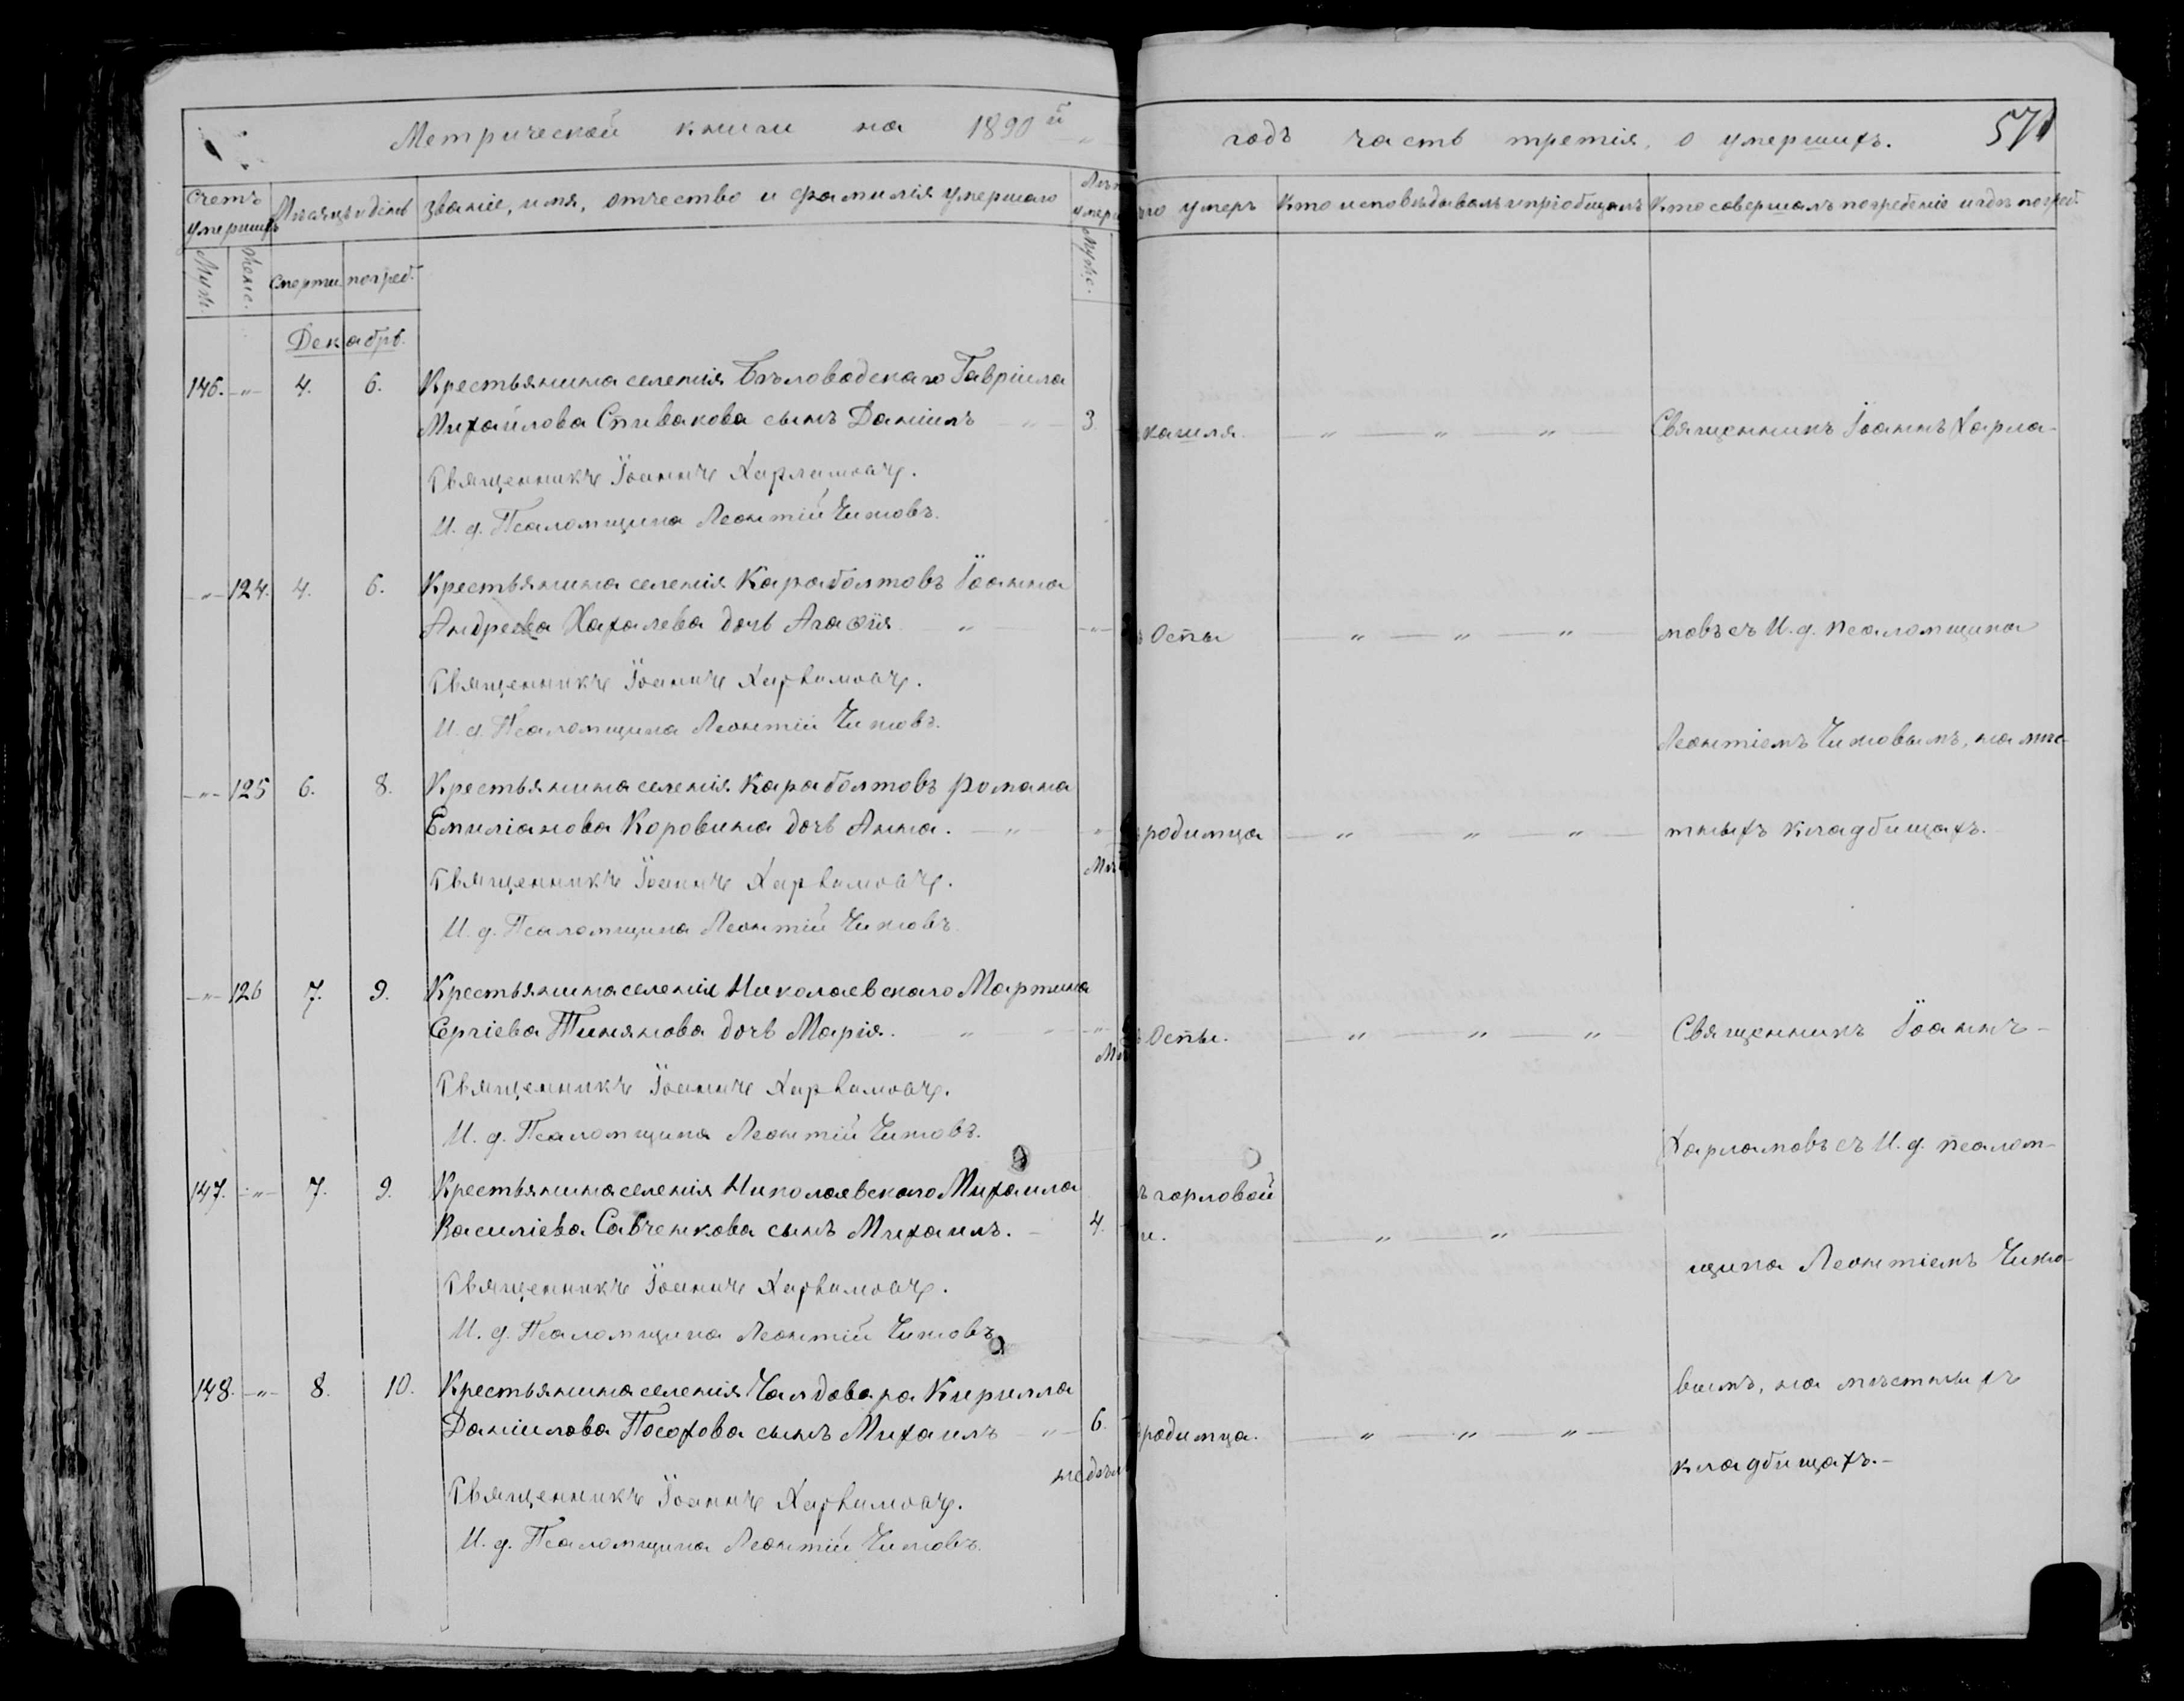 Метрической книги на 1890й
Счетъ умершихъ
Мѣсяцъ и день
Званіе, имя, отчество и фамилія умершаго
Муж.
Женс.
Смерти
погреб.
Муже.
Декабрь.
146. —"— 4. 6. Крестьянина селенія Бѣловодскаго Гавріила
Михайлова Спивакова сынъ Даніилъ —"— 3
Священникъ Іоаннъ Харламовъ.
И. д. Псаломщика Леонтій Чижовъ.
—"— 124. 4. 6. Крестьянина селенія Караболтовъ Іоанна
Андреева Хахалева дочь Агаѳія "
Священникъ Іоаннъ Харламовъ.
И. д. Псаломщика Леонтій Чижовъ.
—"— 125 6. 8. Крестьянина селенія Караболтовъ Романа
Емиліанова Коровина дочь Анна. —"—
Священникъ Іоаннъ Харламовъ.
И. д. Псаломщика Леонтій Чижовъ
—"— 126 7. 9. Крестьянина селенія Николаевскаго Мартина
Сергіева Тинянова дочь Марія. "
Священникъ Іоаннъ Харламовъ.
И. д. Псаломщика Леонтій Чижовъ.
147. —"— 7. 9. Крестьянина селенія Николаевскаго Михаила
Василіева Савченкова сынъ Михаилъ. — 4.
Священникъ Іоаннъ Харламовъ.
И. д. Псаломщика Леонтій Чижовъ
148. —"— 8. 10. Крестьянина селенія Чалдовара Кирилла
Даніилова Посохова сынъ Михаилъ —"— 6.
недѣл
Священникъ Іоаннъ Харламовъ.
И. д. Псаломщика Леонтій Чижовъ.
годъ часть третія, о умершихъ. 571
чего умеръ
Кто исповѣдывалъ и пріобщалъ
Кто совершалъ погребеніе и гдѣ погреб.
кашля. — " — " — " — Священникъ Іоаннъ Харла-
ъ Оспы — " — " — " — мовъ съ И. д. псаломщика
Леонтіемъ Чижовымъ, на мѣс-
родимца — " — " — " — тныхъ кладбищахъ.
ъ Оспы. — " — " — " — Священникъ Іоаннъ —
Харламовъ съ И. д. псалом-
ъ горловой
и. — " — " —
щика Леонтіемъ Чижо-
вымъ, на мѣстныхъ
родимца. — " — " — " —
кладбищахъ. —